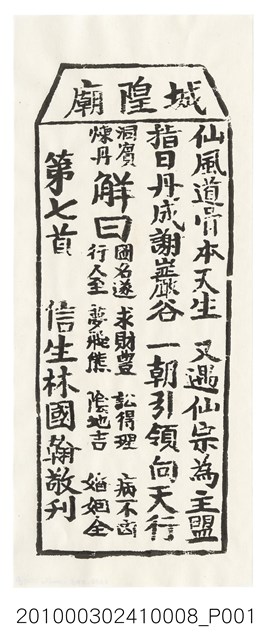 城隍廟
仙風道骨本天生 又遇仙宗為主盟
指日丹成謝巖谷 一朝引領向天行
洞賓
煉丹
解曰
國名遂 求財豊 訟得理 病不凶
行人至 夢飛熊 陰地吉 婚姻全
第七首 信生林國翰敬刋
201000302410008_P001